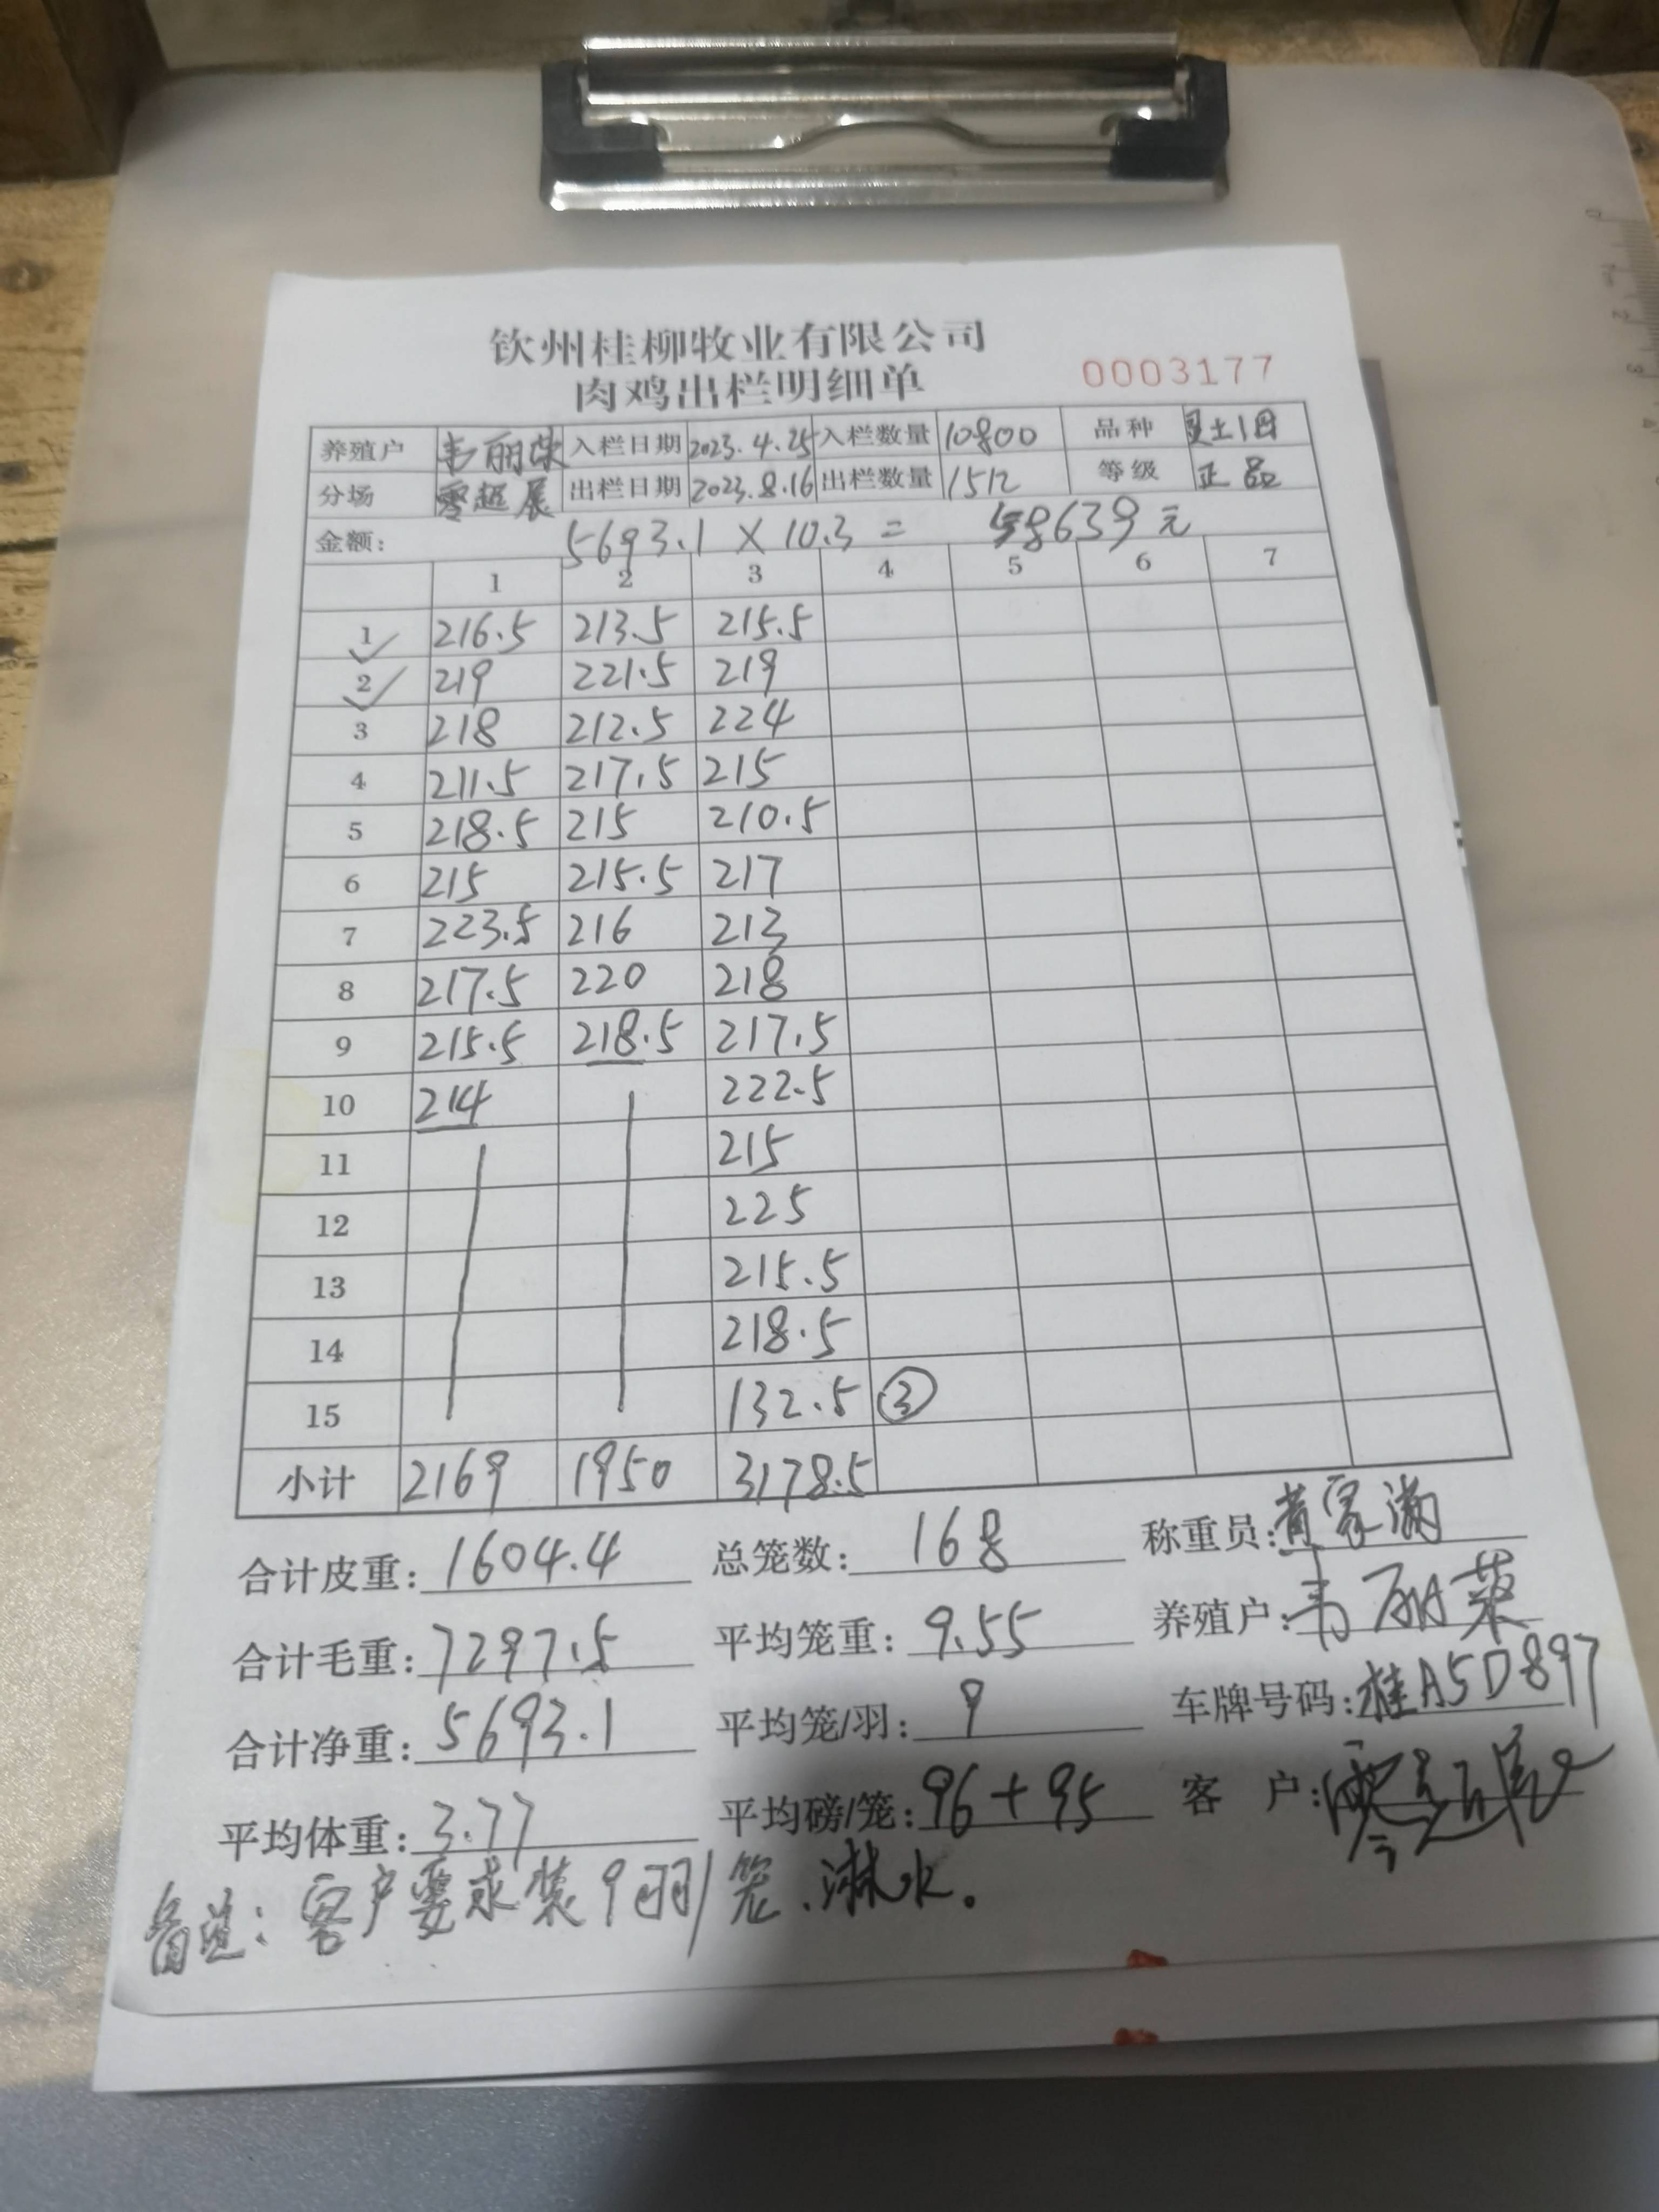 钦州桂柳牧业有限公司
肉鸡出栏明细单 0003177
养殖户 韦丽荣 入栏日期 2023.4.25 入栏数量 10800 品种
分场 零超展 出栏日期 2023.8.16 出栏数量 1512 等级 正品
金额: 5693.1 × 10.3 = 58639元
1 2 3 4 5 6 7
1 216.5 213.5 215.5
2 219 221.5 219
3 218 212.5 224
4 211.5 217.5 215
5 218.5 215 210.5
6 215 215.5 217
7 223.5 216 213
8 217.5 220 218
9 215.5 218.5 217.5
10 214 222.5
11 215
12 225
13 215.5
14 218.5
15 132.5 ③
小计 2169 1950 3178.5
合计皮重: 1604.4 总笼数: 168 称重员: 黄家满
合计毛重: 7297.5 平均笼重: 9.55 养殖户: 韦丽荣
合计净重: 5693.1 平均笼/羽: 9 车牌号码: 桂A5D897
平均体重: 3.77 平均磅/笼: 96+95 客 户:
备注: 客户要求装9羽/笼、淋水。